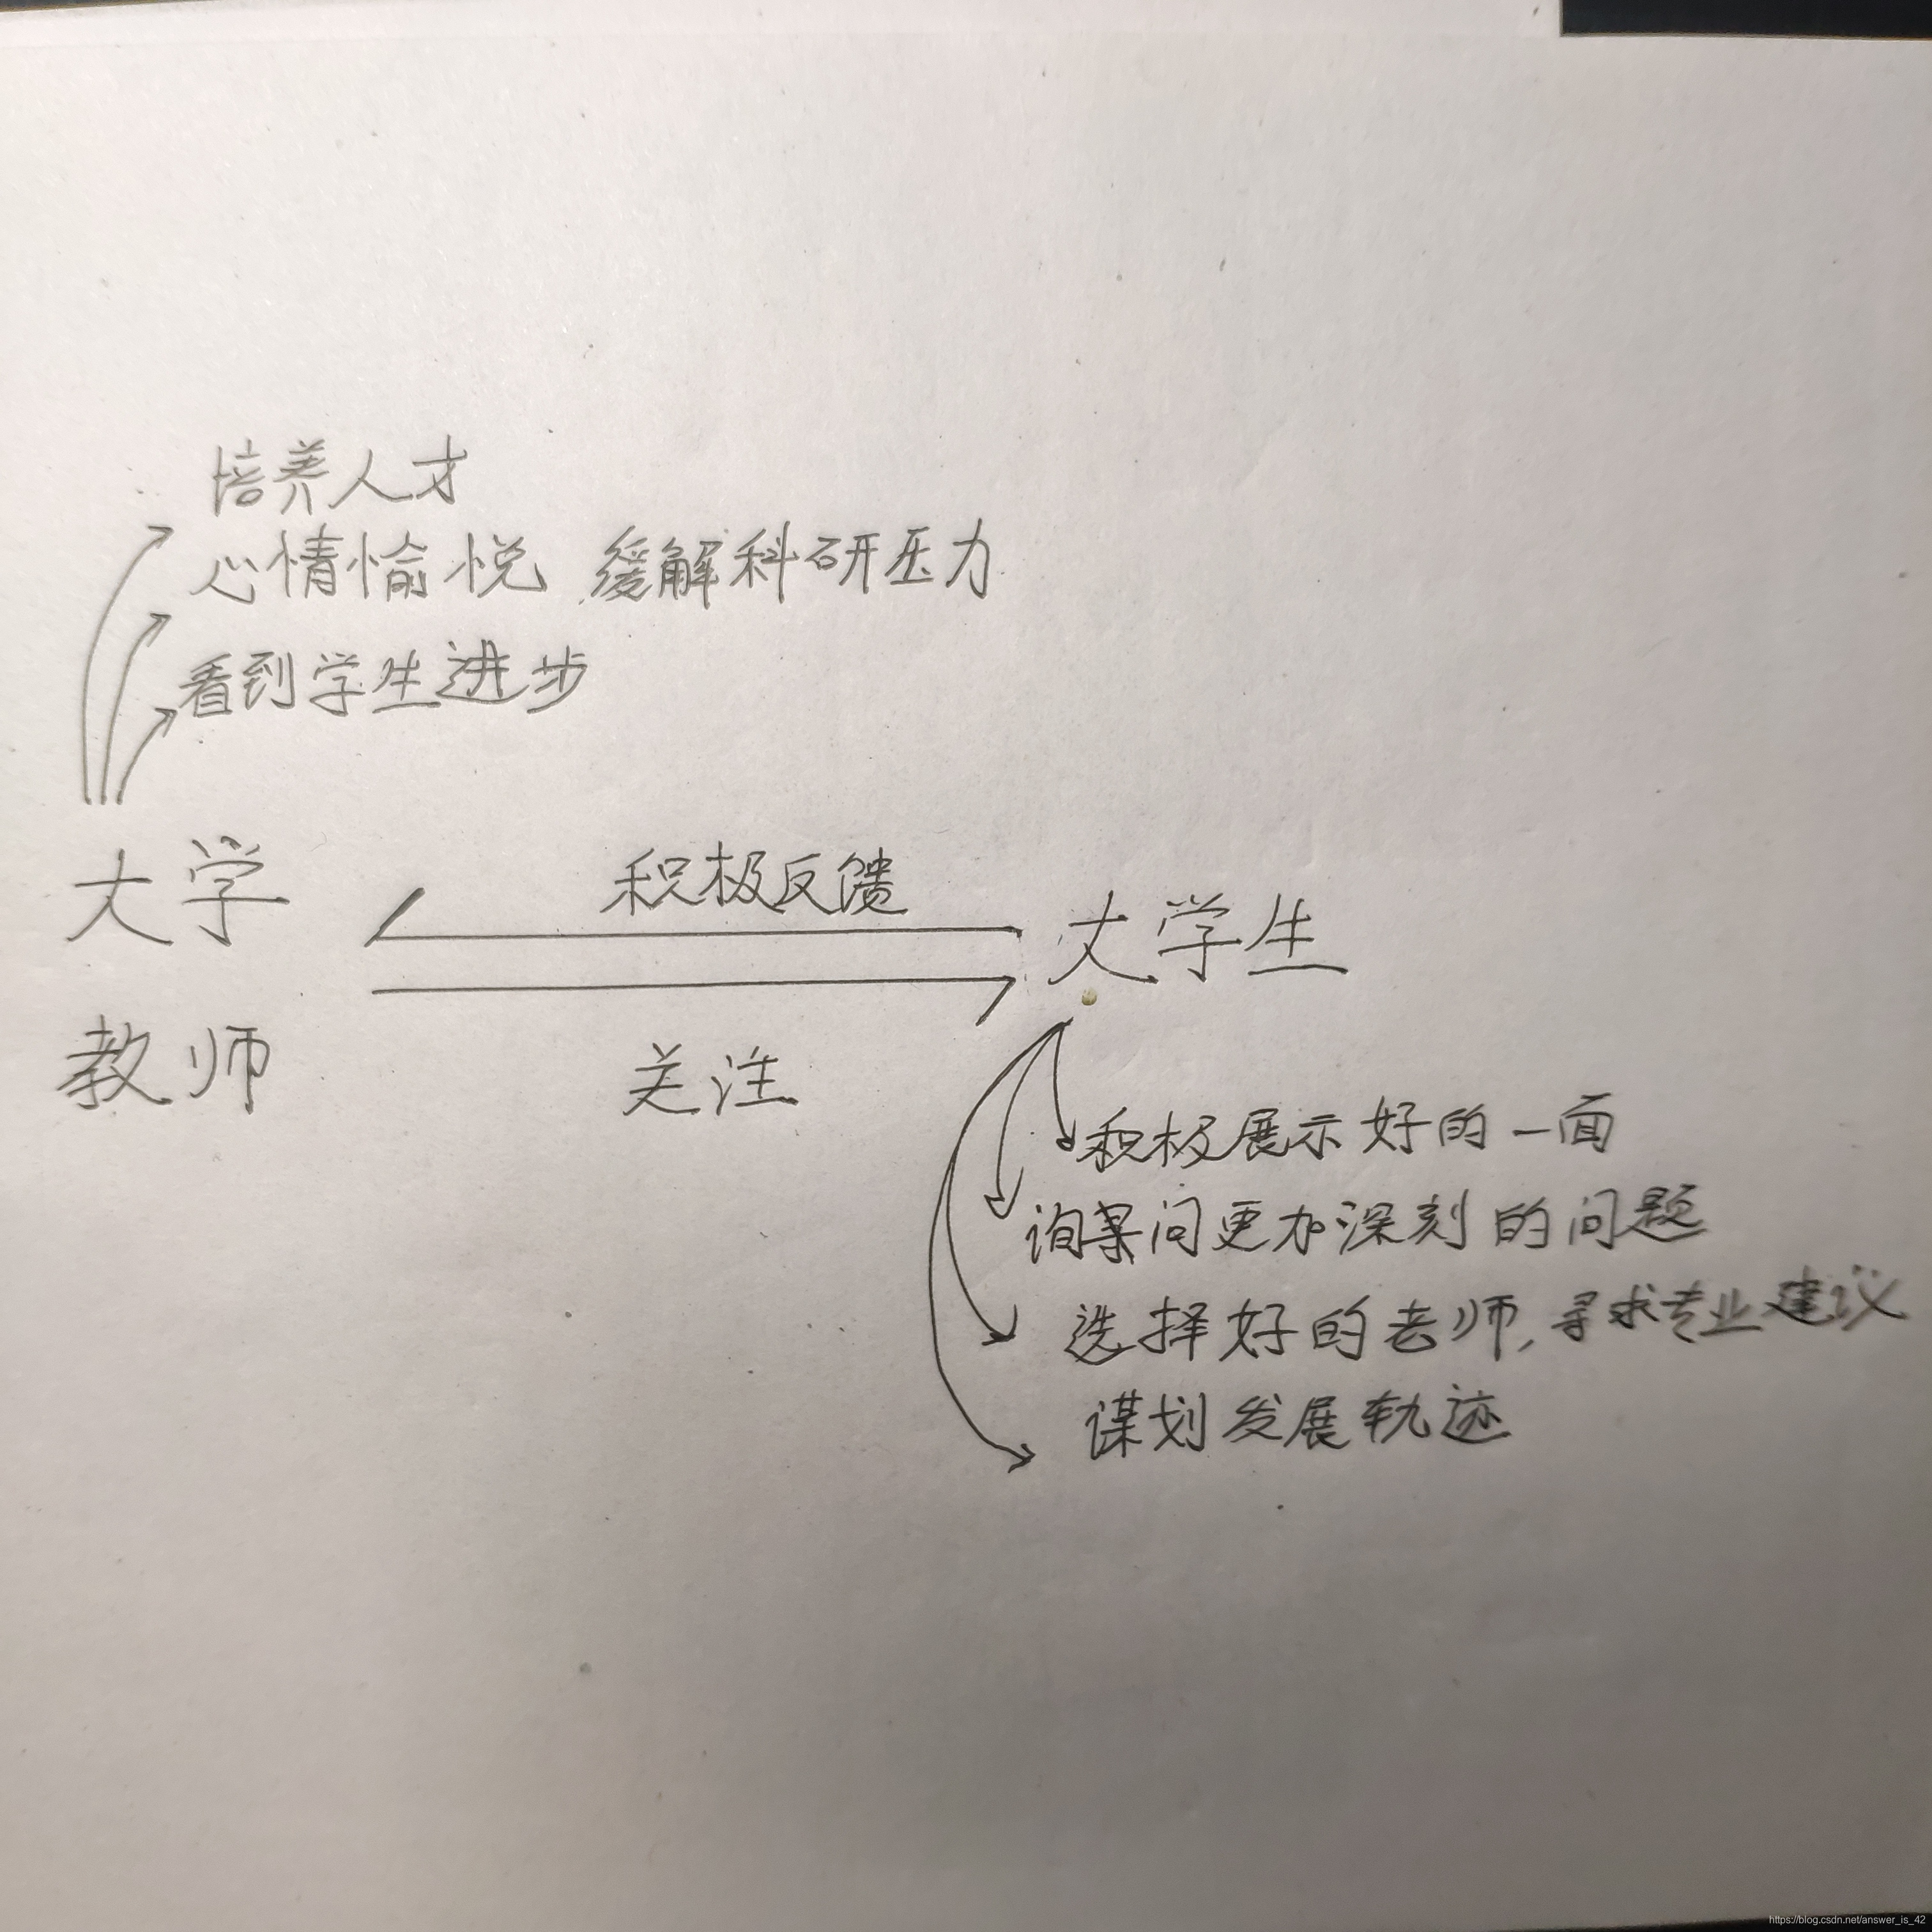 培养人才
心情愉悦 缓解科研压力
看到学生进步
大学
教师
积极反馈
关注
大学生
积极展示好的一面
询问更加深刻的问题
选择好的老师,寻求专业建议
谋划发展轨迹
https://blog.csdn.net/answer_is_42